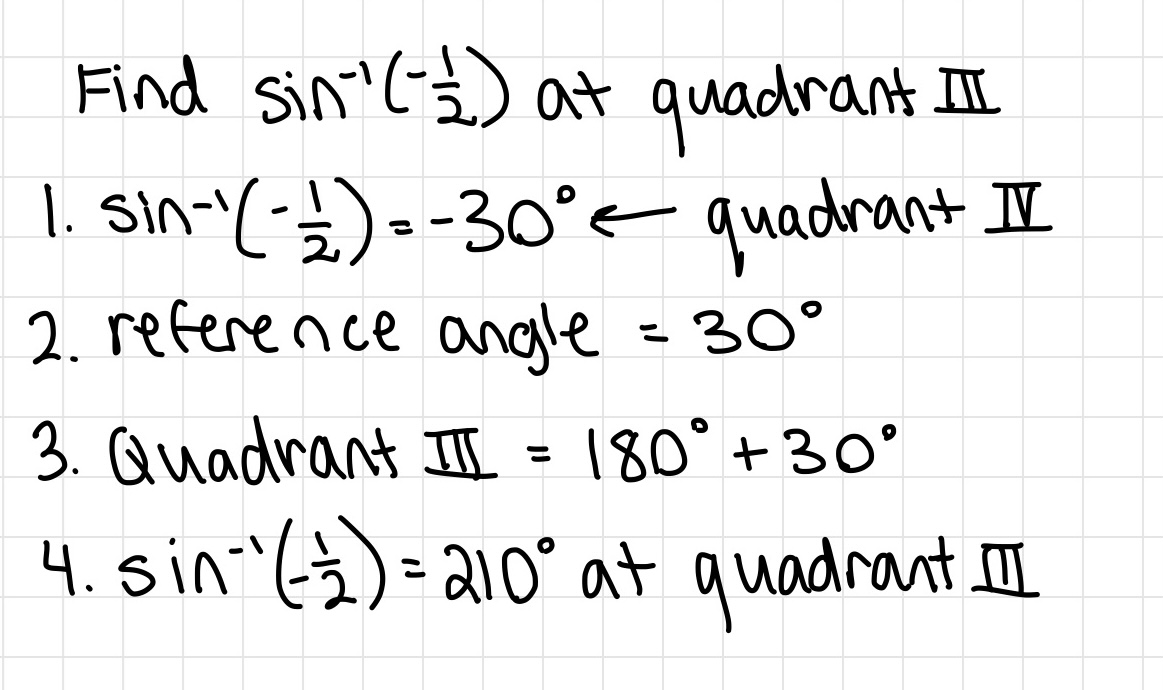 Find sin⁻¹(-1/2) at quadrant III
1. sin⁻¹(-1/2) = -30° ← quadrant IV
2. reference angle = 30°
3. Quadrant III = 180° + 30°
4. sin⁻¹(-1/2) = 210° at quadrant III